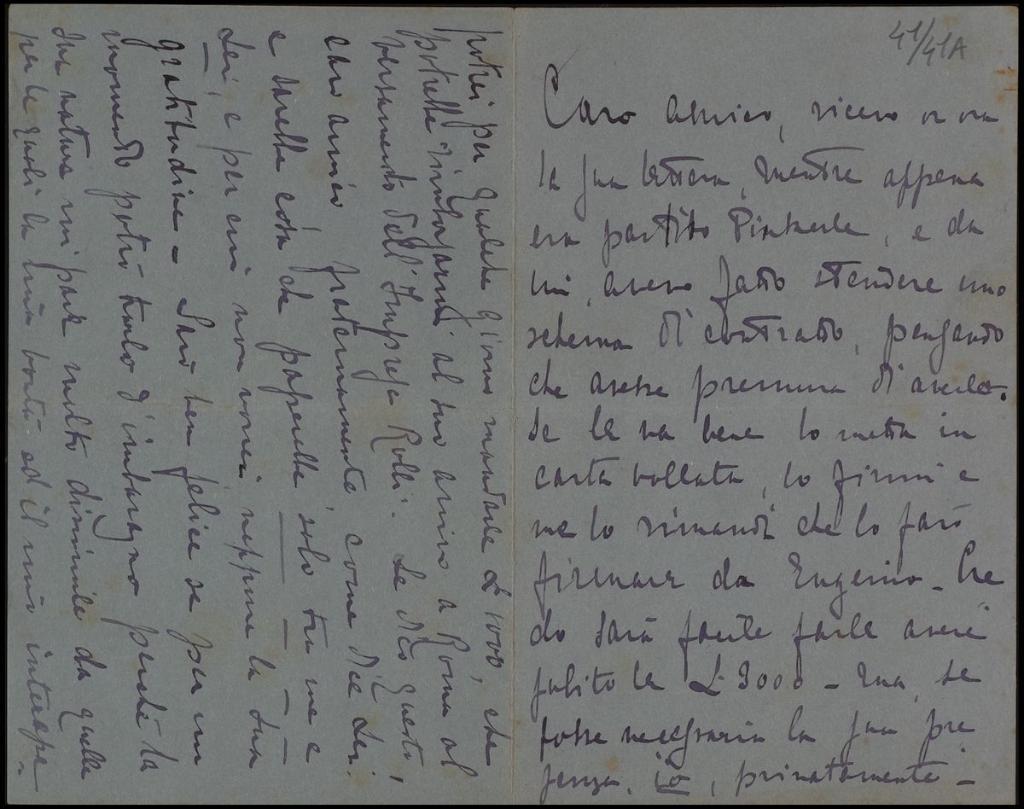 41/41A
Caro amico, ricevo or ora
la sua lettera, mentre appena
era partito Pinkerle, e da
lui, avevo fatto stendere uno
schema di contratto, pensando
che avesse premura di averlo.
Se le va bene lo metta in
carta bollata, lo firmi e
me lo rimandi che lo farò
firmare da Eugenio - Cre
do sarà facile farle avere
subito le L 3000 - ma, se
fosse necessaria la sua pre
senza, io, privatamente -
potrei per qualche giorno mandarle L 1000, che
potrebbe rimborsarmi al suo arrivo a Roma al
versamento dell'Impresa Rolli. Le dico questo,
caro amico fraternamente, come dice Lei.
e sarebbe cosa che saprebbe solo tra me e
Lei, e per cui non vorrei neppure la sua
gratitudine - Sarò ben felice se per un
momento potrò trarlo d'imbarazzo perchè la
sua natura mi pare molto dissimile da quelle
per le quali la mia bontà ed il mio interesse -